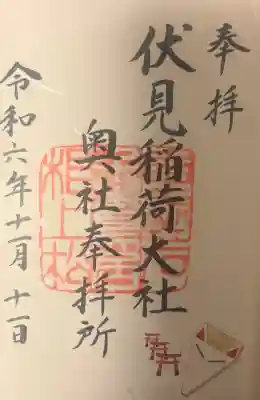 奉拝
伏見稲荷大社
奥社奉拝所
令和六年十一月十一日